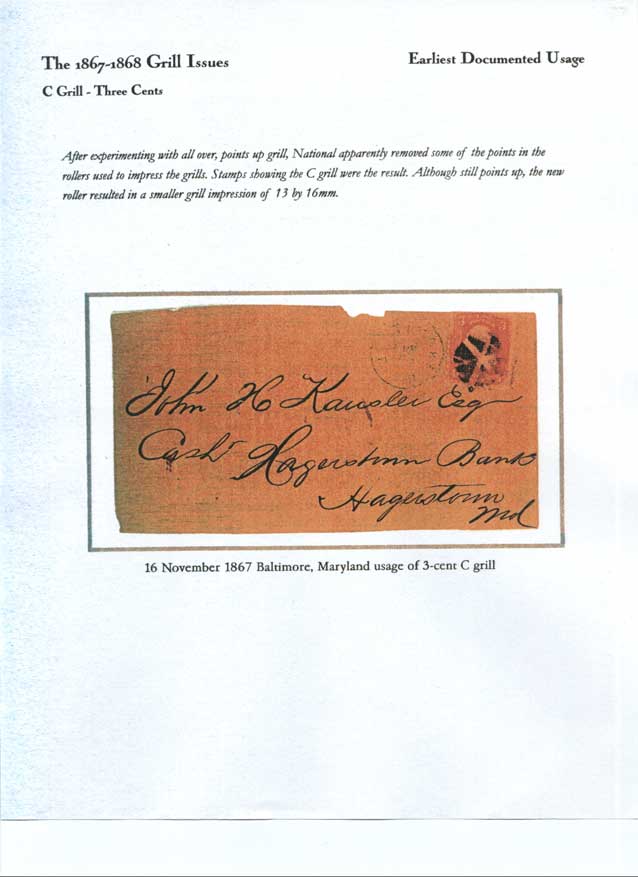 The 1867-1868 Grill Issues
Earliest Documented Usage
C Grill - Three Cents
After experimenting with all over, points up grill, National apparently removed some of the points in the
rollers used to impress the grills. Stamps showing the C grill were the result. Although still points up, the new
roller resulted in a smaller grill impression of 13 by 16mm.
John H Kausler Esq
Cashr Hagerstown Bank
Hagerstown
Md
16 November 1867 Baltimore, Maryland usage of 3-cent C grill